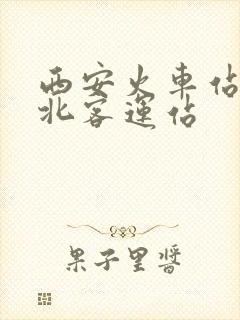 西安火車佔
北客運佔
果子里醬